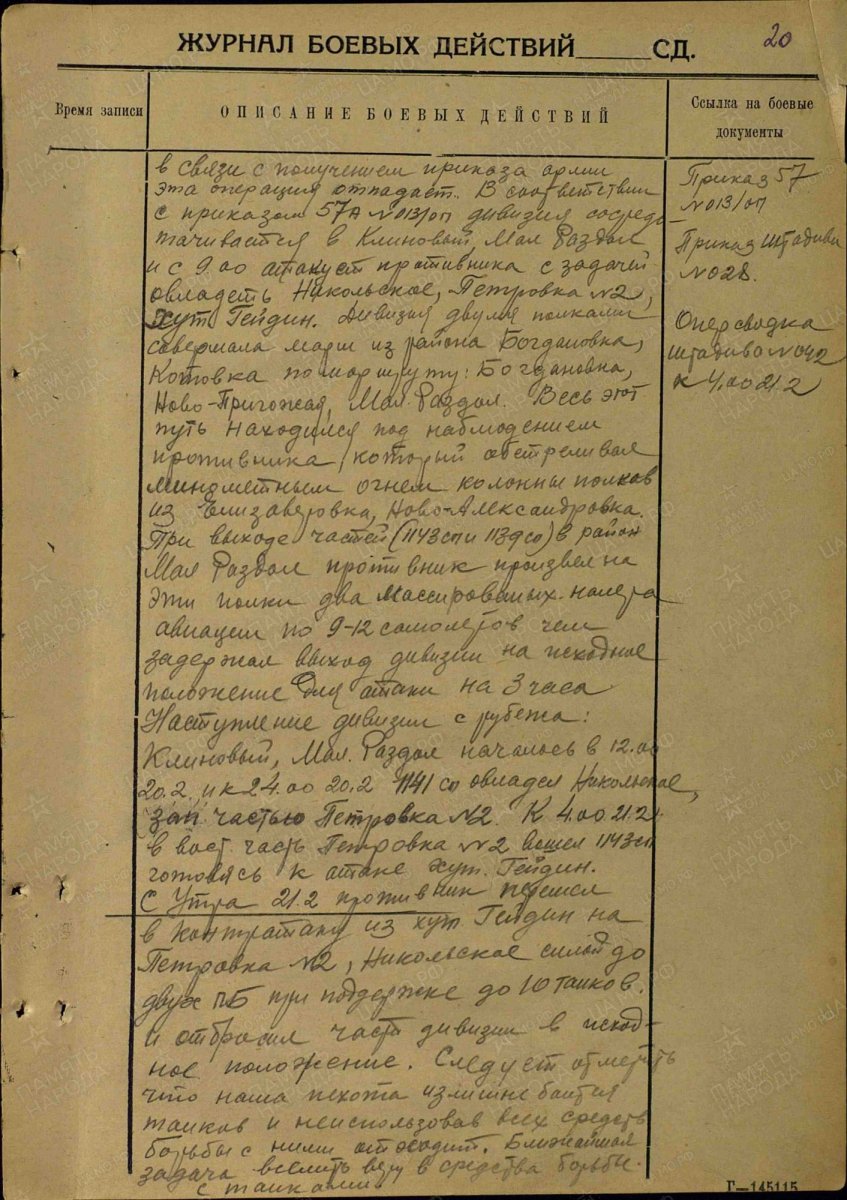 20
ЖУРНАЛ БОЕВЫХ ДЕЙСТВИЙ______СД.
Время записи
ОПИСАНИЕ БОЕВЫХ ДЕЙСТВИЙ
Ссылка на боевые
документы
в связи с получением приказа армии
эта операция отпадает. В соответствии
с приказом 57А №013/оп дивизия сосредо
тачивается в Клиновый, Мал Раздол
и с 9.00 атакует противника с задачей
овладеть Никольское, Петровка №2,
хут. Гейдин. Дивизия двумя полками
совершала марш из района Богдановка,
Котовка по маршруту: Богдановка,
Ново-Пригожая, Мал. Раздол. Весь этот
путь находился под наблюдением
противника, который обстреливал
минометным огнем колонны полков
из Елизаветовка, Ново-Александровка.
При выходе частей (1143сп и 1139сп) в район
Мал Раздол противник произвел на
эти полки два массированых налета
авиации по 9-12 самолетов чем
задержал выход дивизии на исходное
положение для атаки на 3 часа
Наступление дивизии с рубежа:
Клиновый, Мал. Раздол началось в 12.00
20.2 и к 24.00 20.2 1141 сп овладел Никольское,
зап частью Петровка №2. К 4.00 21.2
в вост. часть Петровка №2 вошел 1143сп
готовясь к атаке хут. Гейдин.
С утра 21.2 противник перешел
в контратаку из хут Гейдин на
Петровка №2, Никольское силой до
двух ПБ при поддержке до 10 танков.
и отбросил части дивизии в исход-
ное положение. Следует отметить
что наша пехота излишне боится
танков и неиспользовав всех средств
борьбы с ними отходит. Ближайшая
задача вселить веру в средства борьбы
с танками
Приказ 57
№013/оп
Приказ штадива
№028.
Оперсводка
штадива №042
к 4.00 21.2
Г—145115